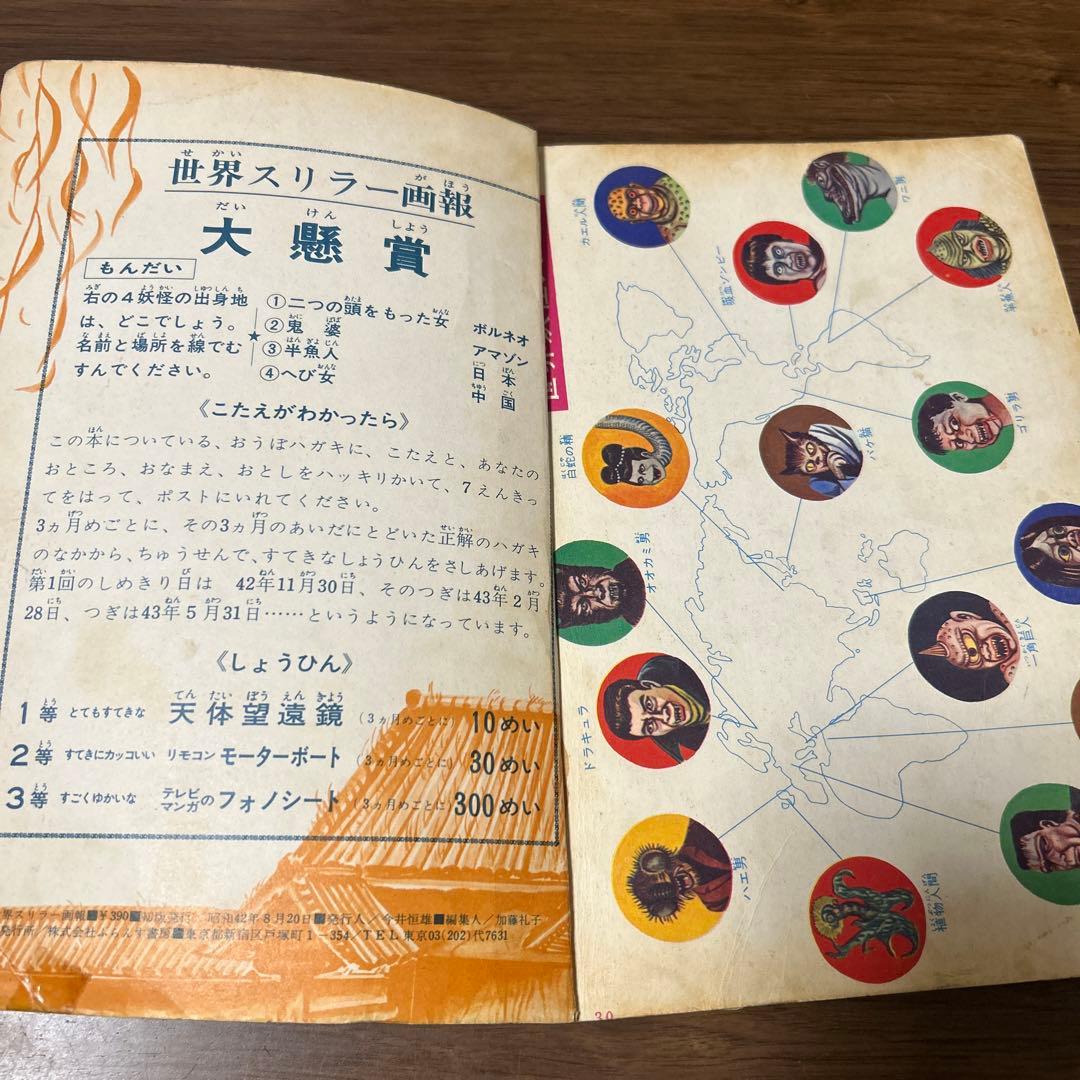 世界スリラー画報
大懸賞
もんだい
右の4妖怪の出身地
は、どこでしょう。
名前と場所を線でむ
すんでください。
★
①二つの頭をもった女
②鬼婆
③半魚人
④へび女
ボルネオ
アマゾン
日本
中国
《こたえがわかったら》
この本についている、おうぼハガキに、こたえと、あなたの
おところ、おなまえ、おとしをハッキリかいて、7えんきっ
てをはって、ポストにいれてください。
3ヵ月めごとに、その3ヵ月のあいだにとどいた正解のハガキ
のなかから、ちゅうせんで、すてきなしょうひんをさしあげます。
第1回のしめきり日は 42年11月30日、そのつぎは43年2月
28日、つぎは43年5月31日……というようになっています。
《しょうひん》
1等 とてもすてきな 天体望遠鏡 (3ヵ月めごとに) 10めい
2等 すてきにカッコいい リモコン モーターボート (3ヵ月めごとに) 30めい
3等 すごくゆかいな テレビマンガの フォノシート (3ヵ月めごとに) 300めい
界スリラー画報■¥390■初版発行 昭和42年8月20日■発行人/今井恒雄■編集人/加藤礼子
発行所/株式会社ふらんす書房■東京都新宿区戸塚町1-354/TEL東京03(202)代7631
カエル人間
ワニ男
吸血ゾンビー
半魚人
ゴリラ男
白蛇の精
バケ猫
オオカミ男
一角巨人
ドラキュラ
ハエ男
植物人間
30